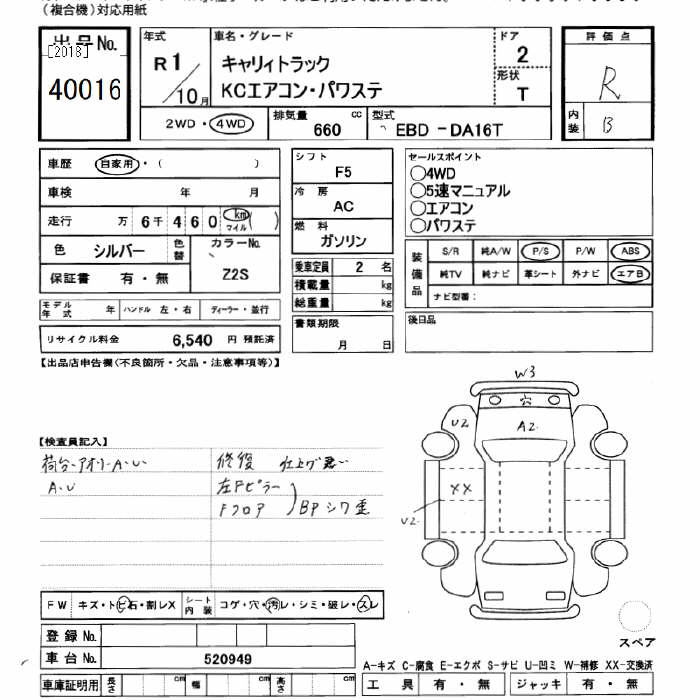 (複合機)対応用紙
出品No.
[2018]
40016
年式
R1/10月
車名・グレード
キャリィトラック
KCエアコン・パワステ
ドア
2
形状
T
評価点
R
内装
B
2WD・4WD
排気量
660
cc
型式
EBD -DA16T
車歴
自家用・( )
車検 年 月
走行 万 6千 4 6 0 km マイル ( )
色
シルバー
色替
カラーNo.
Z2S
保証書 有・無
モデル年式 年
ハンドル 左・右
ディーラー・並行
リサイクル料金 6,540 円 預託済
シフト
F5
冷房
AC
燃料
ガソリン
乗車定員 2 名
積載量 kg
総重量 kg
書類期限
月 日
セールスポイント
○4WD
○5速マニュアル
○エアコン
○パワステ
装備品
S/R 純A/W P/S P/W ABS
純TV 純ナビ 革シート 外ナビ エアB
ナビ型番:
後日品
【出品店申告欄(不良箇所・欠品・注意事項等)】
【検査員記入】
荷台・アオリ-A・U
A・U
修復 仕上げ悪い
左Fピラー
Fフロア
BPシワ歪
W3
穴
U2
A2
XX
U2
FW
キズ・トビ石・割レX
シート内装
コゲ・穴・汚レ・シミ・破レ・スレ
登録No.
車台No. 520949
車庫証明用
長さ cm
幅 cm
高さ cm
スペア
A-キズ C-腐食 E-エクボ S-サビ U-凹ミ W-補修 XX-交換済
工具 有・無
ジャッキ 有・無